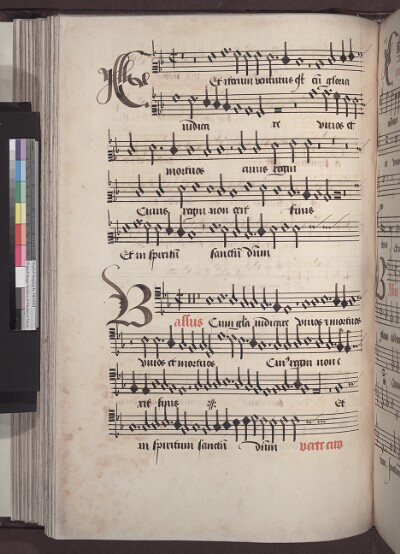 Et iterum venturus est cū gloria
iudica re vivos et
mortuos cuius regni
Cuius regni non erit finis
Et in spiritū sanctū dūm
Bassus Cum gla iudicare vivos et mortuos
vivos et mortuos Cui9 regni non e
rit finis Et
in spiritum sanctū dūm verte cito